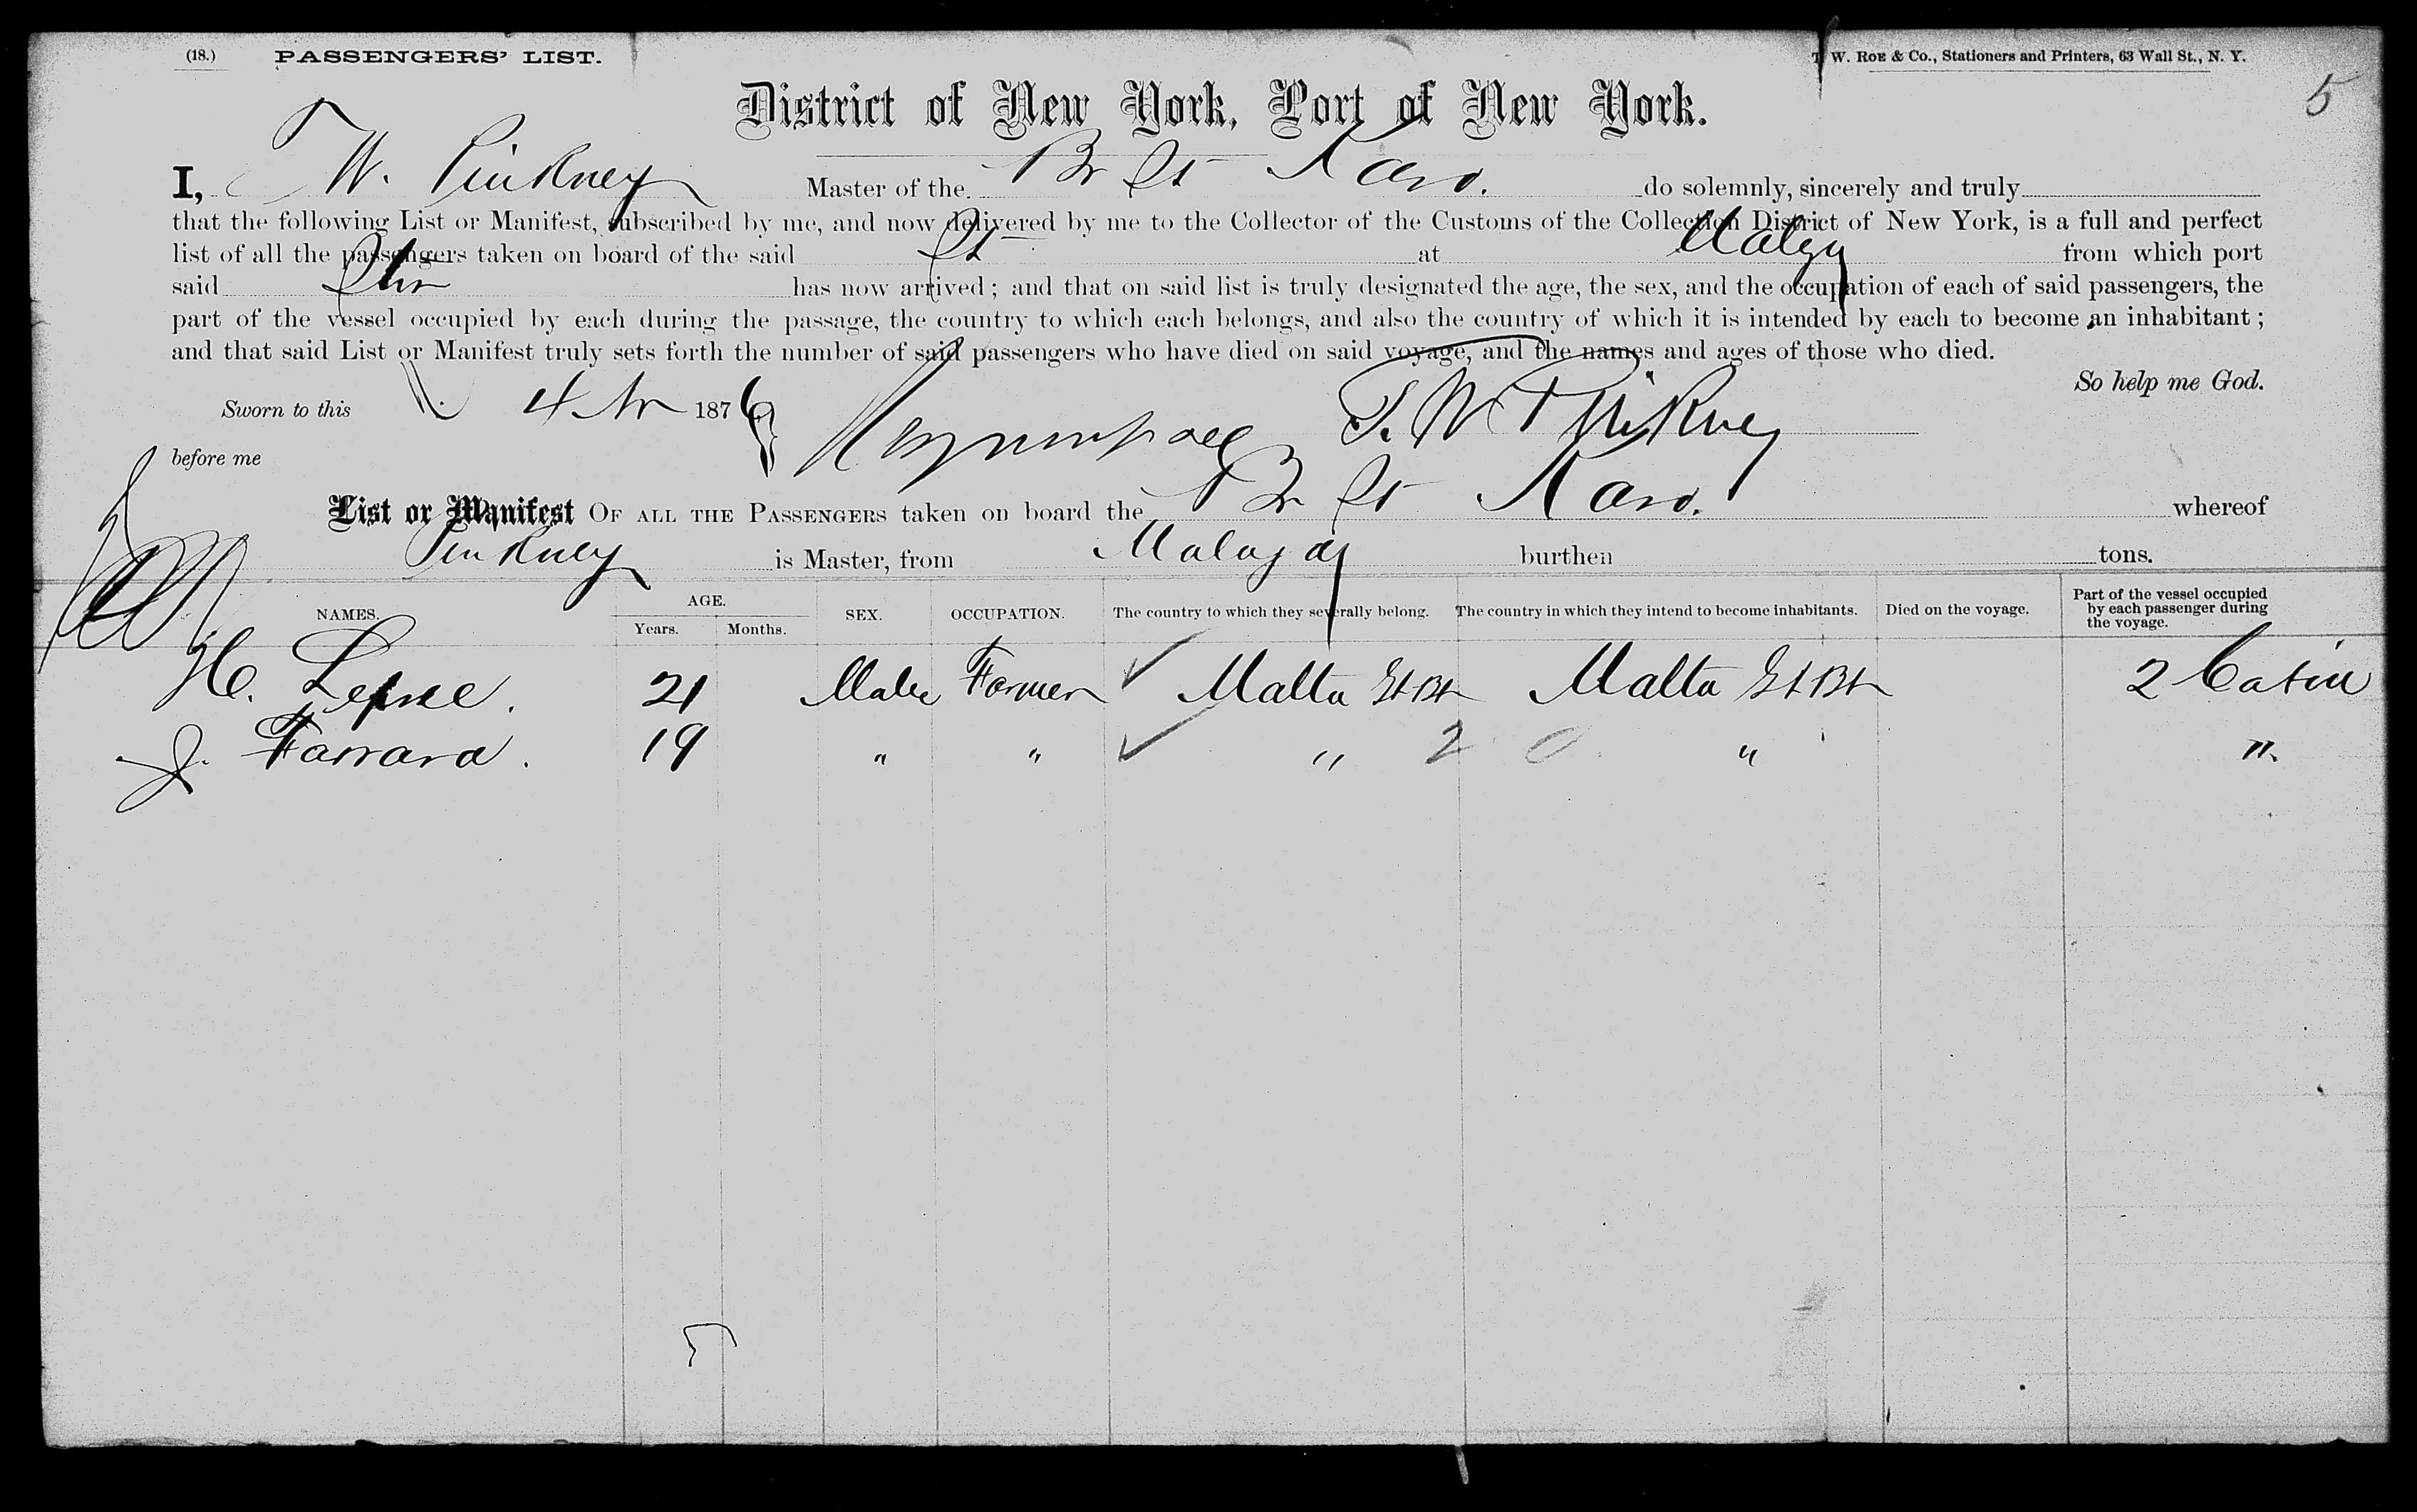 (18.) PASSENGERS' LIST. T. W. ROE & Co., Stationers and Printers, 63 Wall St., N. Y.
5
District of New York, Port of New York.
I, T W. Pinkney Master of the Br St Karo. do solemnly, sincerely and truly
that the following List or Manifest, subscribed by me, and now delivered by me to the Collector of the Customs of the Collection District of New York, is a full and perfect
list of all the passengers taken on board of the said St at Malaga from which port
said Str has now arrived; and that on said list is truly designated the age, the sex, and the occupation of each of said passengers, the
part of the vessel occupied by each during the passage, the country to which each belongs, and also the country of which it is intended by each to become an inhabitant;
and that said List or Manifest truly sets forth the number of said passengers who have died on said voyage, and the names and ages of those who died.
So help me God.
Sworn to this 4 1876 T. W Pinkney
before me
List or Manifest OF ALL THE PASSENGERS taken on board the Br St Karo. whereof
Pinkney is Master, from Malaga burthen tons.
NAMES. AGE. Years. Months. SEX. OCCUPATION. The country to which they severally belong. The country in which they intend to become inhabitants. Died on the voyage. Part of the vessel occupied by each passenger during the voyage.
H. 21 Male Farmer Malta Gt Bt Malta Gt Bt 2 Cabin
J. Farrara. 19 " " " 2 0 " "